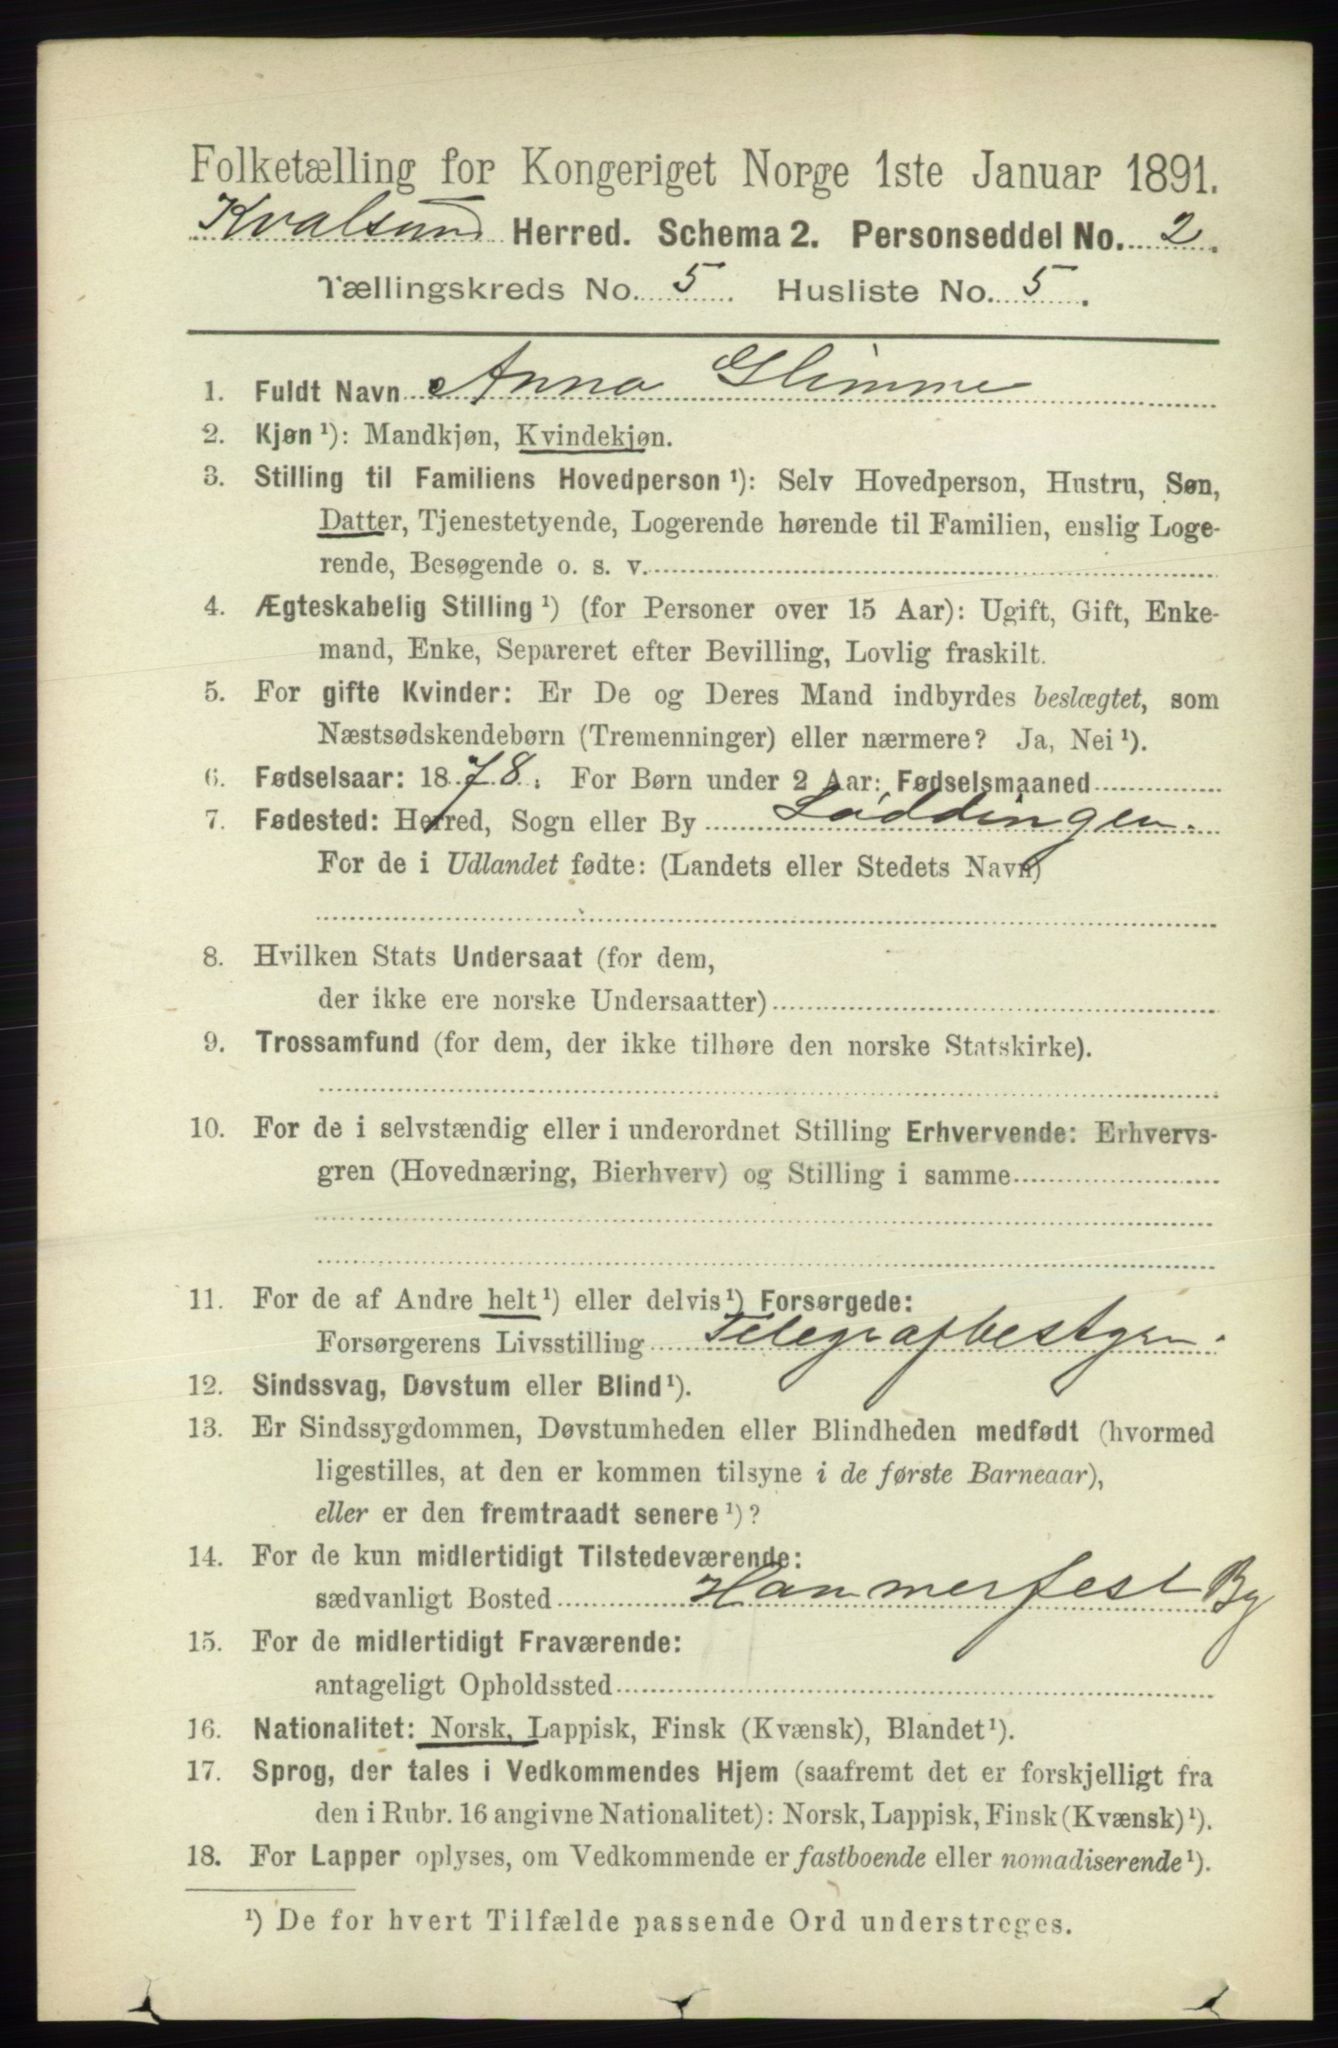 Folketælling for Kongeriget Norge 1ste Januar 1891.
Kvalsund Herred. Schema 2. Personseddel No. 2.
Tællingskreds No. 5. Husliste No. 5.
1. Fuldt Navn Anna Glimme
2. Kjøn ¹): Mandkjøn, Kvindekjøn.
3. Stilling til Familiens Hovedperson ¹): Selv Hovedperson, Hustru, Søn,
Datter, Tjenestetyende, Logerende hørende til Familien, enslig Loge-
rende, Besøgende o. s. v.
4. Ægteskabelig Stilling ¹) (for Personer over 15 Aar): Ugift, Gift, Enke-
mand, Enke, Separeret efter Bevilling, Lovlig fraskilt.
5. For gifte Kvinder: Er De og Deres Mand indbyrdes beslægtet, som
Næstsødskendebørn (Tremenninger) eller nærmere? Ja, Nei ¹).
6. Fødselsaar: 1878. For Børn under 2 Aar: Fødselsmaaned
7. Fødested: Herred, Sogn eller By Løddingen.
For de i Udlandet fødte: (Landets eller Stedets Navn)
8. Hvilken Stats Undersaat (for dem,
der ikke ere norske Undersaatter)
9. Trossamfund (for dem, der ikke tilhøre den norske Statskirke).
10. For de i selvstændig eller i underordnet Stilling Erhvervende: Erhvervs-
gren (Hovednæring, Bierhverv) og Stilling i samme
11. For de af Andre helt ¹) eller delvis ¹) Forsørgede:
Forsørgerens Livsstilling Telegrafbestyrer.
12. Sindssvag, Døvstum eller Blind ¹).
13. Er Sindssygdommen, Døvstumheden eller Blindheden medfødt (hvormed
ligestilles, at den er kommen tilsyne i de første Barneaar),
eller er den fremtraadt senere ¹)?
14. For de kun midlertidigt Tilstedeværende:
sædvanligt Bosted Hammerfest By
15. For de midlertidigt Fraværende:
antageligt Opholdssted
16. Nationalitet: Norsk, Lappisk, Finsk (Kvænsk), Blandet ¹).
17. Sprog, der tales i Vedkommendes Hjem (saafremt det er forskjelligt fra
den i Rubr. 16 angivne Nationalitet): Norsk, Lappisk, Finsk (Kvænsk) ¹).
18. For Lapper oplyses, om Vedkommende er fastboende eller nomadiserende ¹).
¹) De for hvert Tilfælde passende Ord understreges.